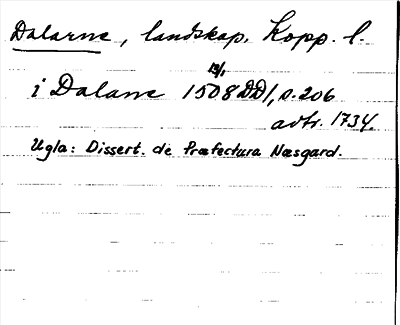 Dalarne, landskap, Kopp. l.
13/1
i Dalane 1508 DD1, s. 206
avtr. 1734.
Ugla: Dissert. de Præfectura Næsgard.